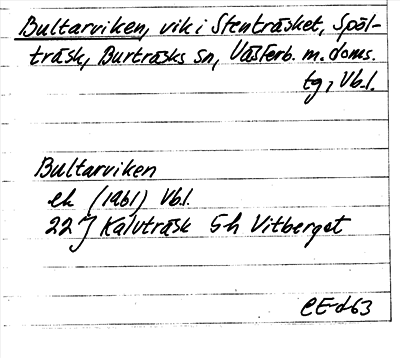 Bultarviken, vik i Stenträsket, Spöl-
träsk, Burträsks sn, Västerb. m. doms.
tg, Vb.l.
Bultarviken
ek (1961) Vbl.
22 J Kalvträsk 5h Vitberget
CE-d63